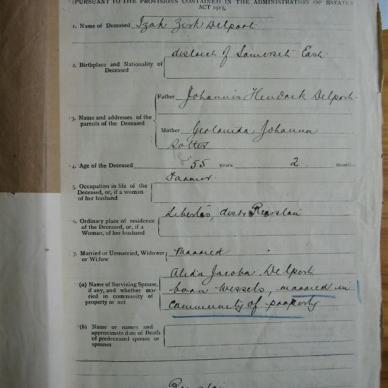 PURSUANT TO THE PROVISIONS CONTAINED IN THE ADMINISTRATION OF ESTATES
ACT 1913.
1. Name of Deceased Izak Delport
district of Somerset East
2. Birthplace and Nationality of
Deceased
Father Johannis Hendrik Delport
3. Name and addresses of the
parents of the Deceased
Mother Johanna
4. Age of the Deceased 55 years 2 months
Farmer
5. Occupation in life of the
Deceased, or, if a woman
of her husband
6. Ordinary place of residence
of the Deceased, or, if a
Woman, of her husband
7. Married or Unmarried, Widower
or Widow
Married
Alida Jacoba Delport
(a) Name of Surviving Spouse,
if any, and whether mar-
ried in community of
property or not
born Wessels, married in
community of property
(b) Name or names and
approximate date of Death
of predeceased spouse or
spouses